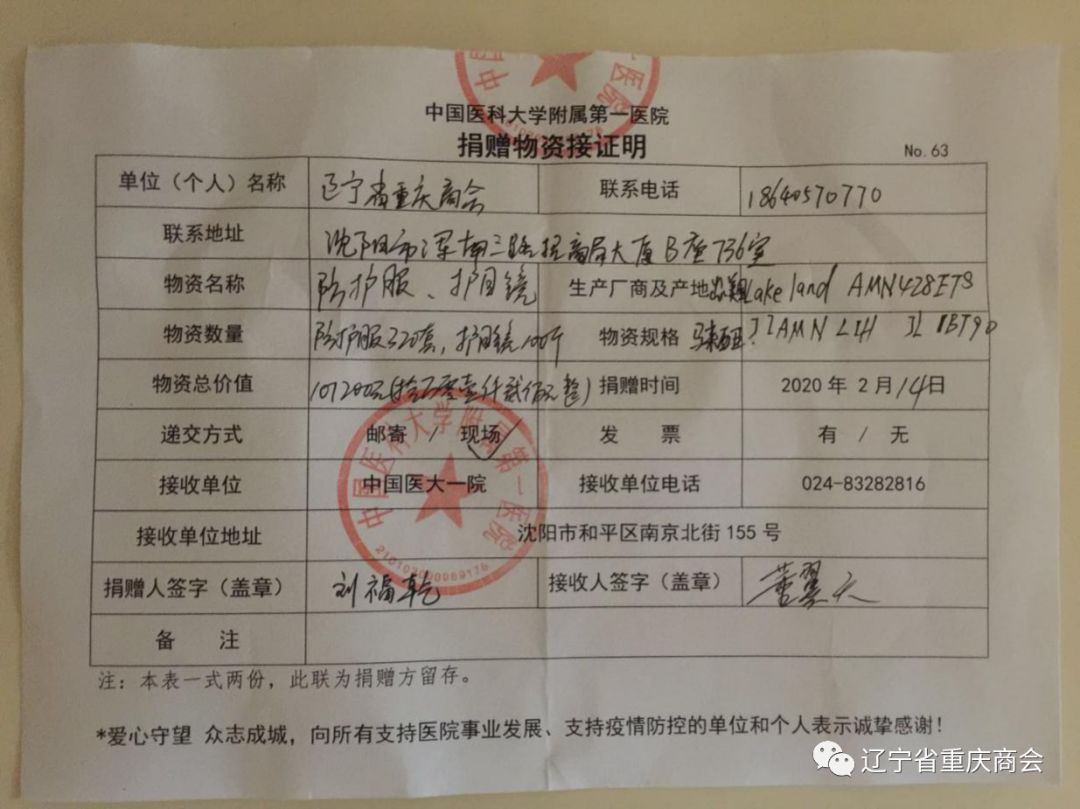 中国医科大学附属第一医院
捐赠物资接证明
No.63
单位（个人）名称 辽宁省重庆商会 联系电话 18640570770
联系地址 沈阳市浑南三路招商局大厦B座736室
物资名称 防护服、护目镜 生产厂商及产地 Lakeland AMN428ETS
物资数量 防护服320套，护目镜100个 物资规格
物资总价值 107200元(拾万零 仟贰佰元整) 捐赠时间 2020 年 2 月 14 日
递交方式 邮寄 / 现场 发 票 有 / 无
接收单位 中国医大一院 接收单位电话 024-83282816
接收单位地址 沈阳市和平区南京北街 155 号
捐赠人签字（盖章） 刘福乾 接收人签字（盖章）
备 注
注：本表一式两份，此联为捐赠方留存。
*爱心守望 众志成城，向所有支持医院事业发展、支持疫情防控的单位和个人表示诚挚感谢！
中国医科大学附属第一医院
210102000069176
辽宁省重庆商会